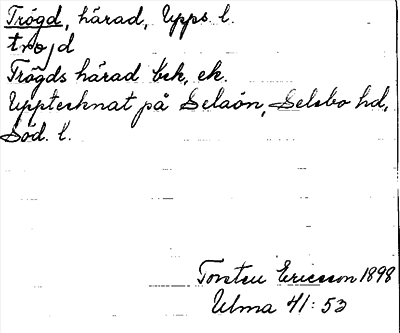 Trögd, härad, Upps. l.
trøjd
Trögds härad bek, ek.
Upptecknat på Selaön, Selebo hd,
Söd. l.
Torsten Ericsson 1898
Ulma 41:53